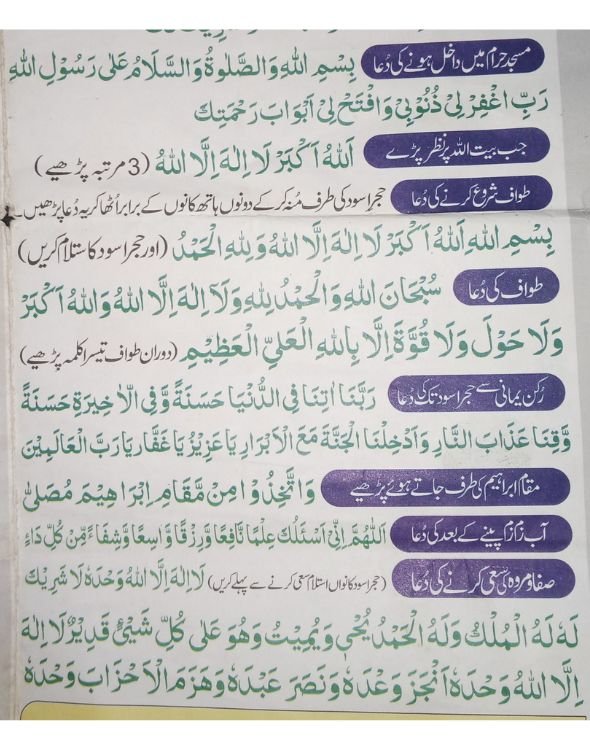 مسجد حرام میں داخل ہونے کی دُعا بِسْمِ اللهِ وَالصَّلٰوةُ وَالسَّلَامُ عَلٰى رَسُوْلِ اللهِ
رَبِّ اغْفِرْ لِيْ ذُنُوْبِيْ وَافْتَحْ لِيْ اَبْوَابَ رَحْمَتِكَ
جب بیت اللہ پر نظر پڑے اَللهُ اَكْبَرْ لَا اِلٰهَ اِلَّا اللهُ (3 مرتبہ پڑھیے)
طواف شروع کرنے کی دُعا حجر اسود کی طرف مُنہ کر کے دونوں ہاتھ کانوں کے برابر اُٹھا کر یہ دُعا پڑھیں۔
بِسْمِ اللهِ اَللهُ اَكْبَرْ لَا اِلٰهَ اِلَّا اللهُ وَلِلّٰهِ الْحَمْدُ (اور حجر اسود کا ستلام کریں)
طواف کی دُعا سُبْحَانَ اللهِ وَالْحَمْدُ لِلّٰهِ وَلَآ اِلٰهَ اِلَّا اللهُ وَاللهُ اَكْبَرْ
وَلَا حَوْلَ وَلَا قُوَّةَ اِلَّا بِاللهِ الْعَلِيِّ الْعَظِيْمِ (دوران طواف تیسرا کلمہ پڑھیے)
رُکن یمانی سے حجر اسود تک کی دُعا رَبَّنَا اٰتِنَا فِي الدُّنْيَا حَسَنَةً وَّفِي الْاٰخِيرَةِ حَسَنَةً
وَّقِنَا عَذَابَ النَّارِ وَاَدْخِلْنَا الْجَنَّةَ مَعَ الْاَبْرَارِ يَا عَزِيْزُ يَا غَفَّارُ يَارَبَّ الْعَالَمِيْنَ
مقام ابراہیم کی طرف جاتے ہوئے پڑھیے وَاتَّخِذُوْا مِنْ مَّقَامِ اِبْرَاهِيْمَ مُصَلّٰى
آب زم زم پینے کے بعد کی دُعا اَللّٰهُمَّ اِنِّيْ اَسْئَلُكَ عِلْمًا نَّافِعًا وَّرِزْقًا وَّاسِعًا وَّشِفَاءً مِّنْ كُلِّ دَاءٍ
صفا و مروہ کی سعی کرنے کی دُعا (حجر اسود کا نواں استلام سعی کرنے سے پہلے کریں) لَا اِلٰهَ اِلَّا اللهُ وَحْدَهٗ لَا شَرِيْكَ
لَهٗ لَهُ الْمُلْكُ وَلَهُ الْحَمْدُ يُحْيِ وَيُمِيْتُ وَهُوَ عَلٰى كُلِّ شَيْئٍ قَدِيْرٌ لَا اِلٰهَ
اِلَّا اللهُ وَحْدَهٗ اَنْجَزَ وَعْدَهٗ وَنَصَرَ عَبْدَهٗ وَهَزَمَ الْاَحْزَابَ وَحْدَهٗ